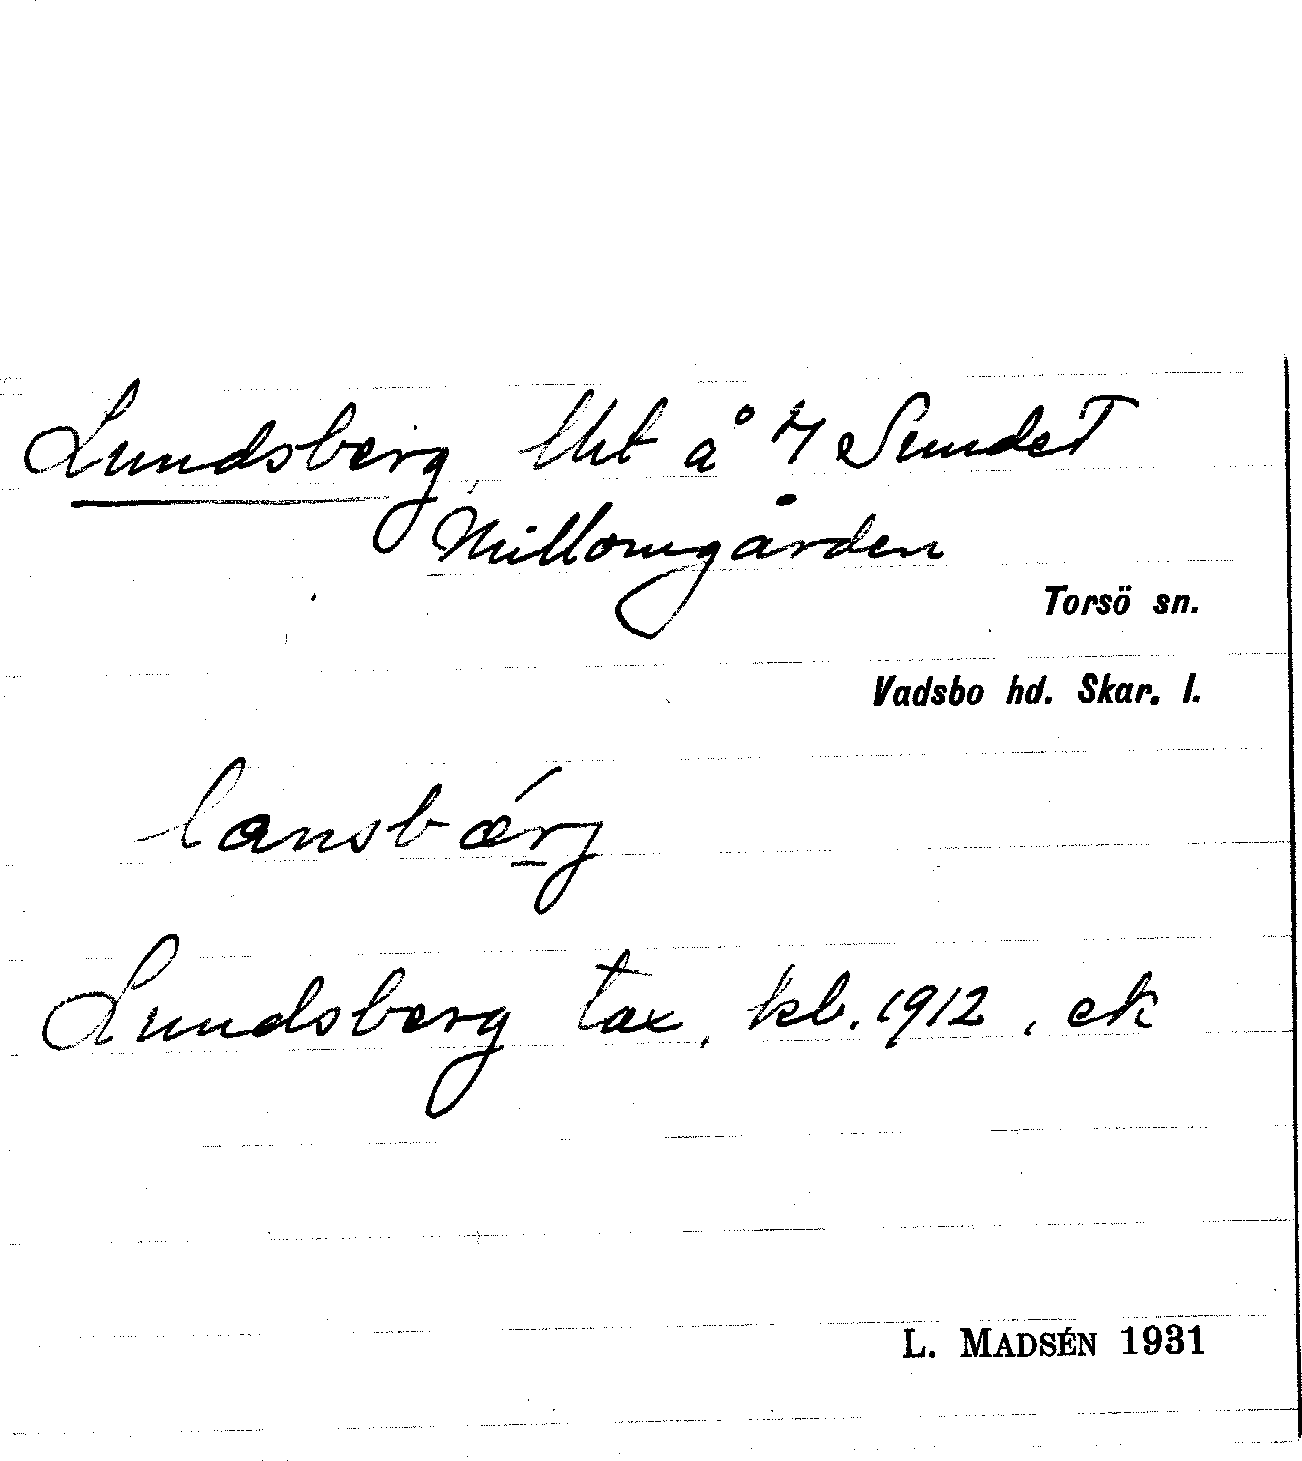 Lundsberg, lht å 1/7 Sundet
Mellomgården
Torsö sn.
Vadsbo hd. Skar. l.
lansbærj
Lundsberg tax. kb. 1912, ek
L. MADSÉN 1931